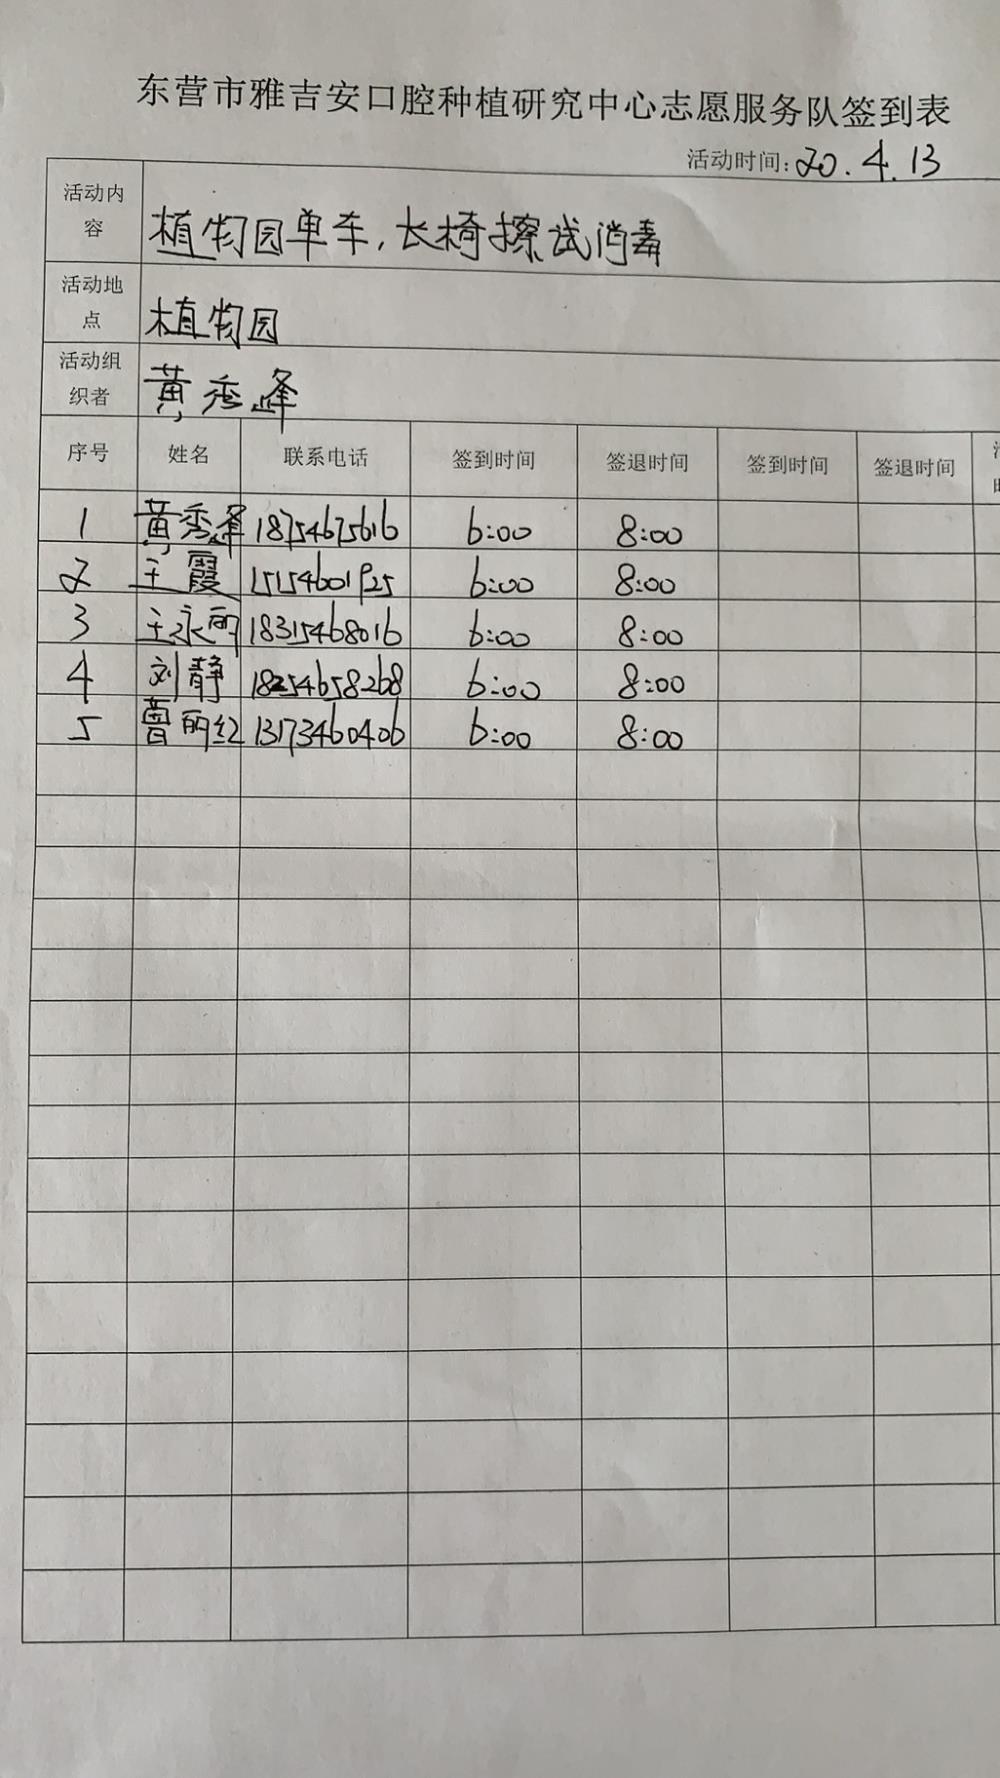 东营市雅吉安口腔种植研究中心志愿服务队签到表
活动时间：20.4.13
活动内容 植物园单车，长椅擦试消毒
活动地点 植物园
活动组织者 黄秀峰
序号 姓名 联系电话 签到时间 签退时间 签到时间 签退时间
1 黄秀峰 18754675616 6:00 8:00
2 王霞 15154601925 6:00 8:00
3 王永丽 18315468016 6:00 8:00
4 刘静 18254658268 6:00 8:00
5 曹丽红 13173460406 6:00 8:00